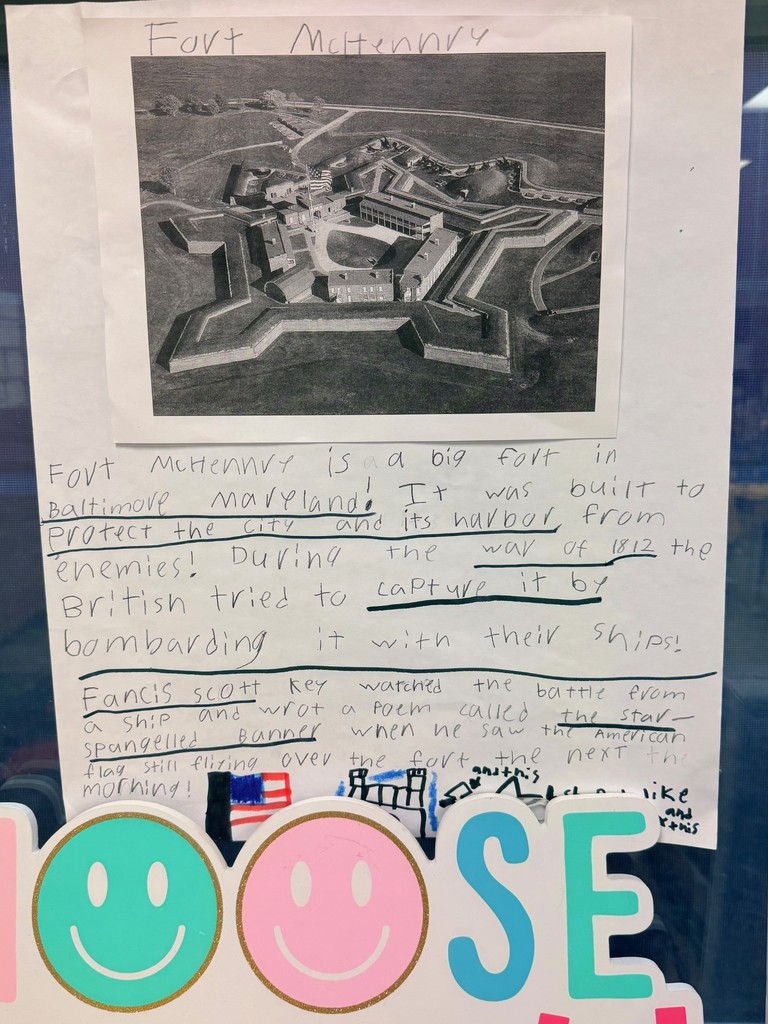 Fort McHennry
Fort McHennry is a big fort in
Baltimore Maryeland! It was built to
protect the city and its harbor from
enemies! During the war of 1812 the
British tried to capture it by
bombarding it with their ships!
Fancis scott Key watched the battle from
a ship and wrot a poem called the star-
spangelled Banner when he saw the American
flag still flizing over the fort the next the
morning!
and this
like
and
this
OOSE